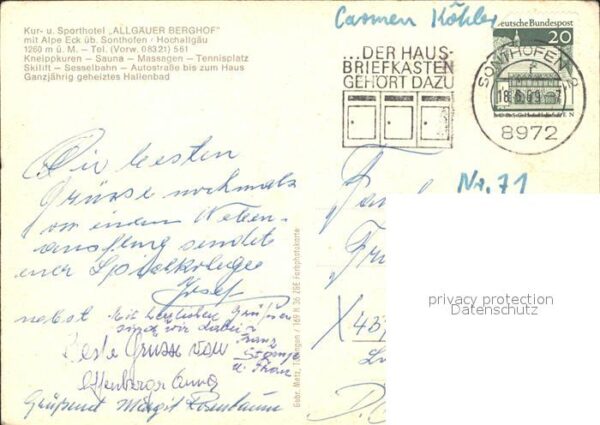 Kur- u. Sporthotel „ALLGÄUER BERGHOF"
mit Alpe Eck üb. Sonthofen · Hochallgäu
1260 m ü. M. – Tel. (Vorw. 08321) 561
Kneippkuren – Sauna – Massagen – Tennisplatz
Skilift – Sesselbahn – Autostraße bis zum Haus
Ganzjährig geheiztes Hallenbad
Carmen Köhler
Deutsche Bundespost
20
...DER HAUS-
BRIEFKASTEN
GEHÖRT DAZU
SONTHOFEN 2
8972
Nr. 71
Die besten
Grüsse nochmals
von einem Neben-
ausflug sendet
euer
Josef
nebst
Mit herzlichen Grüßen
sind wir dabei
Franz
Beste Grüsse von
Grüßend Margit Rosenbaum
Gebr. Metz, Tübingen
Farbphotokarte
privacy protection
Datenschutz